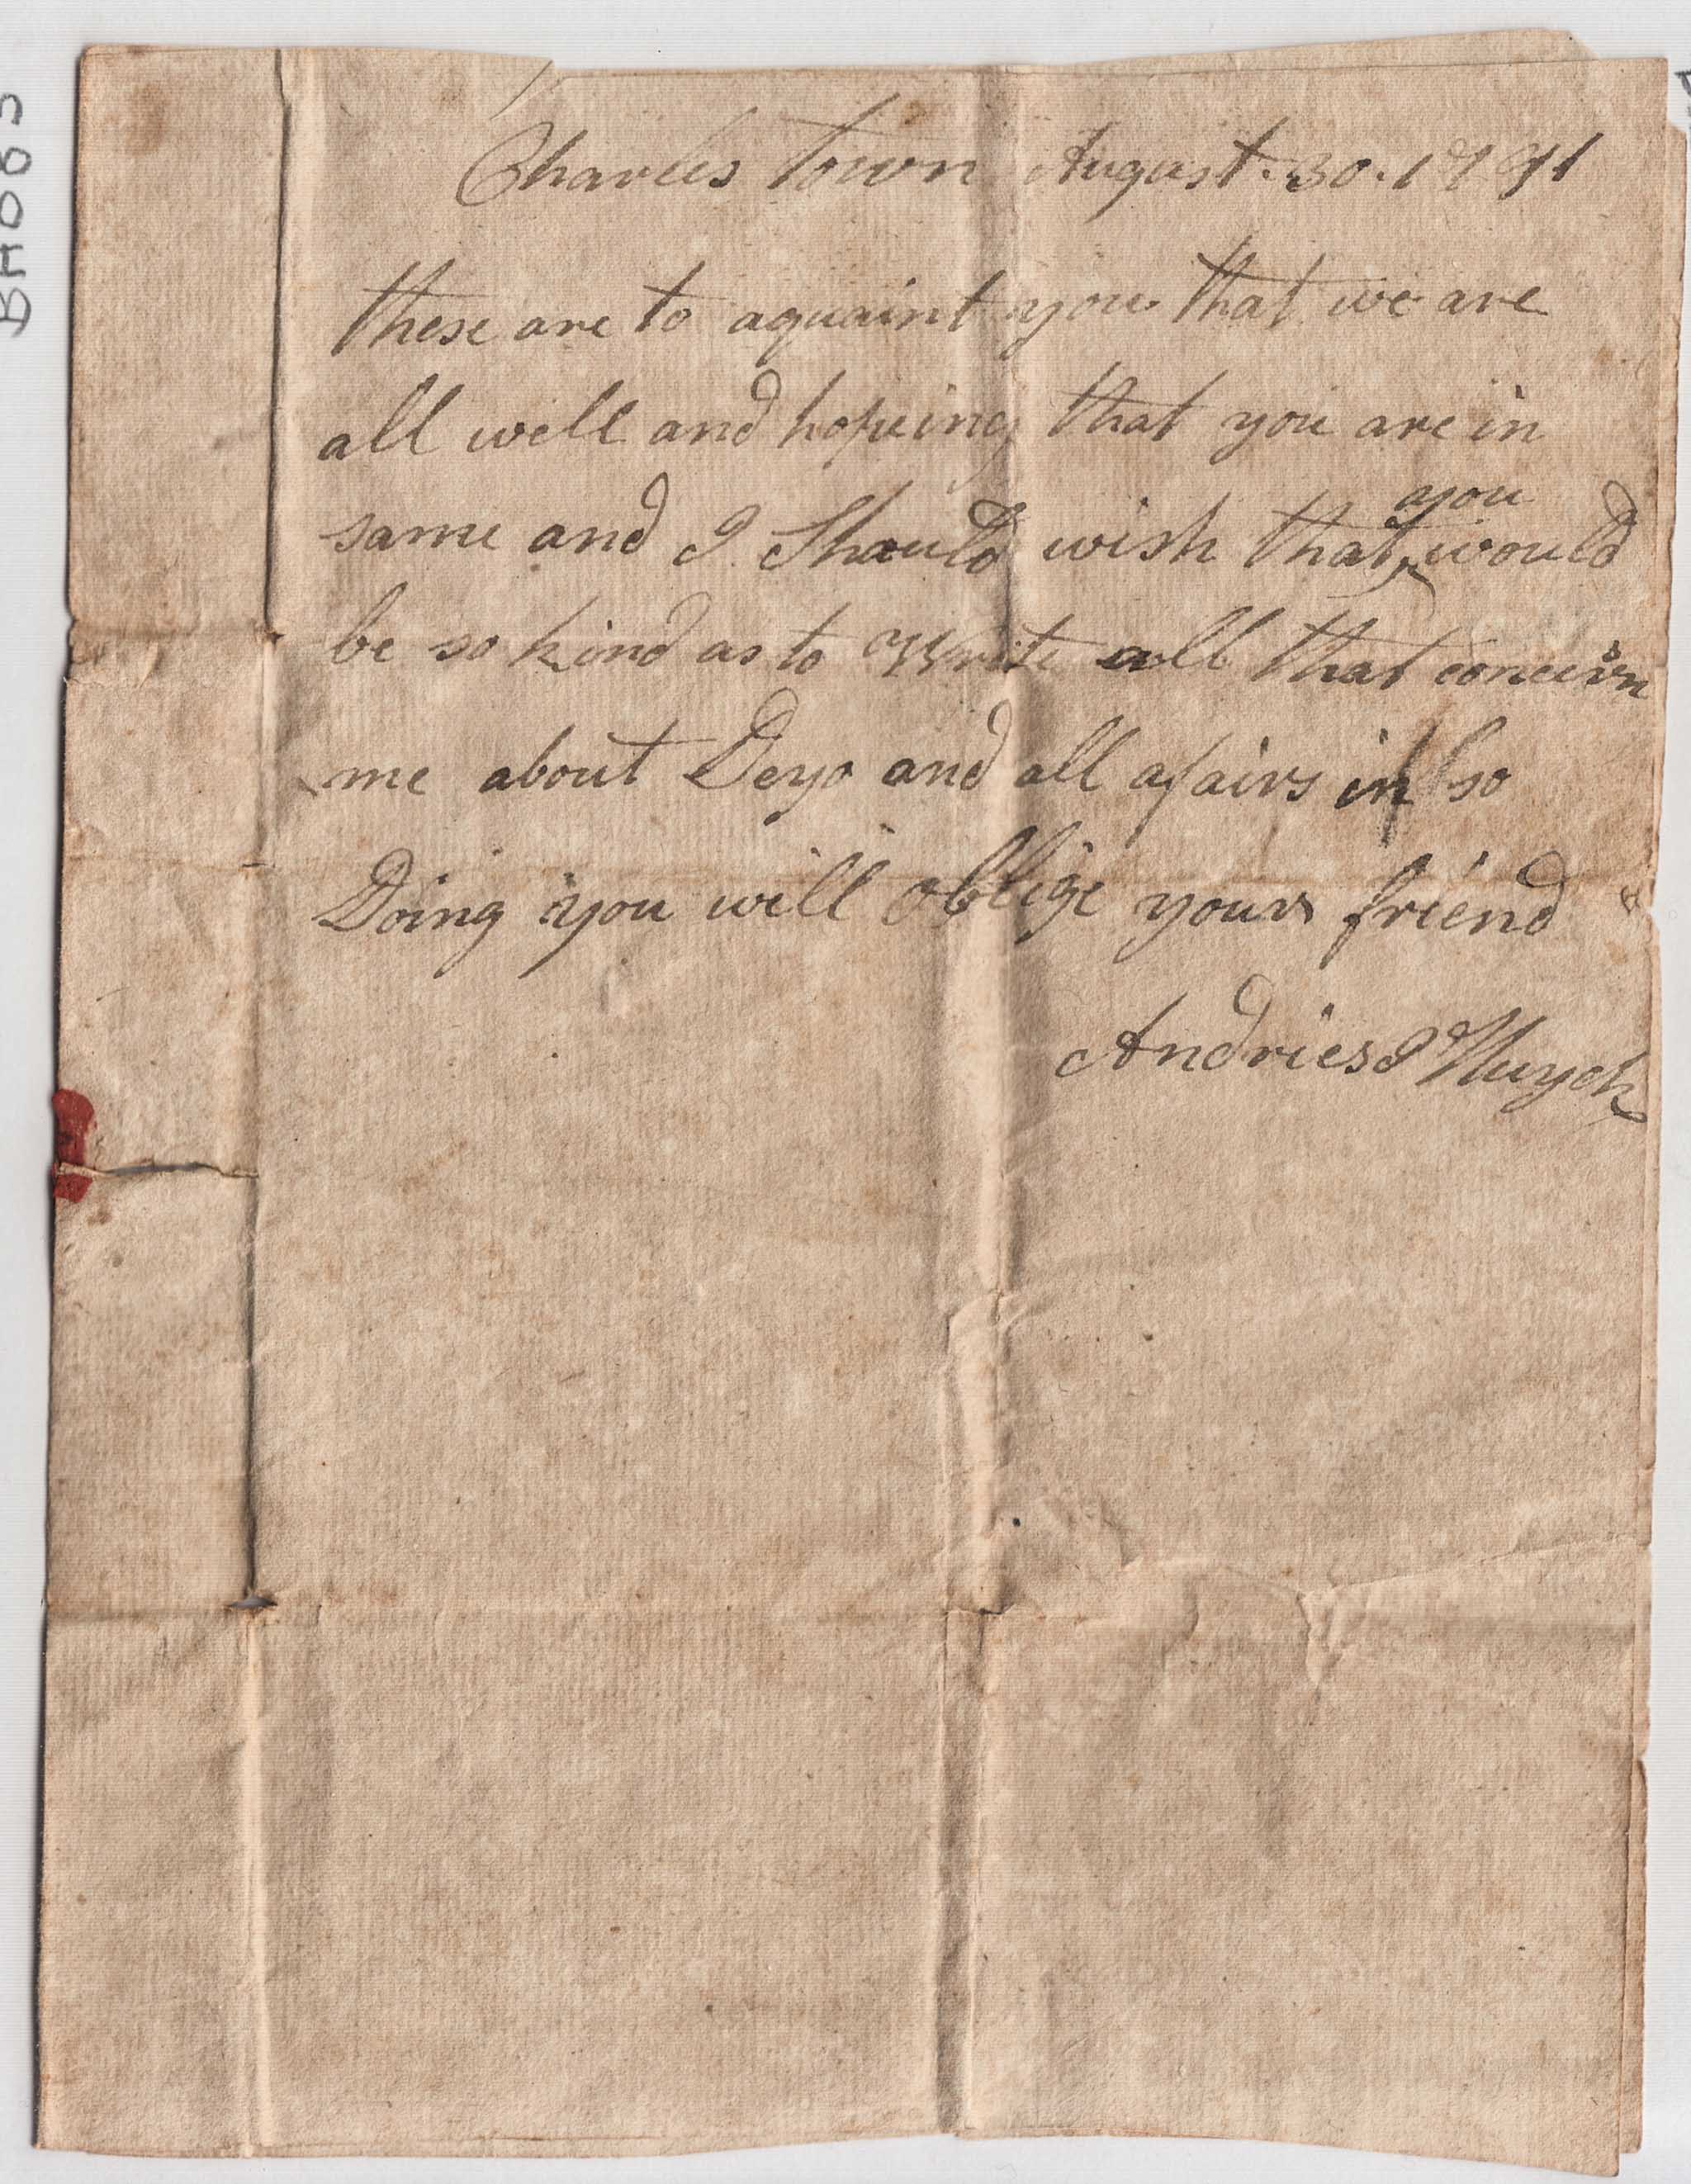 Charles Town August. 30. 1791
these are to aquaint you that we are
all well and hopeing that you are in
same and I Should wish that you would
be so kind as to Write all that concern
me about Deyo and all afairs in so
Doing you will oblige your friend
Andries